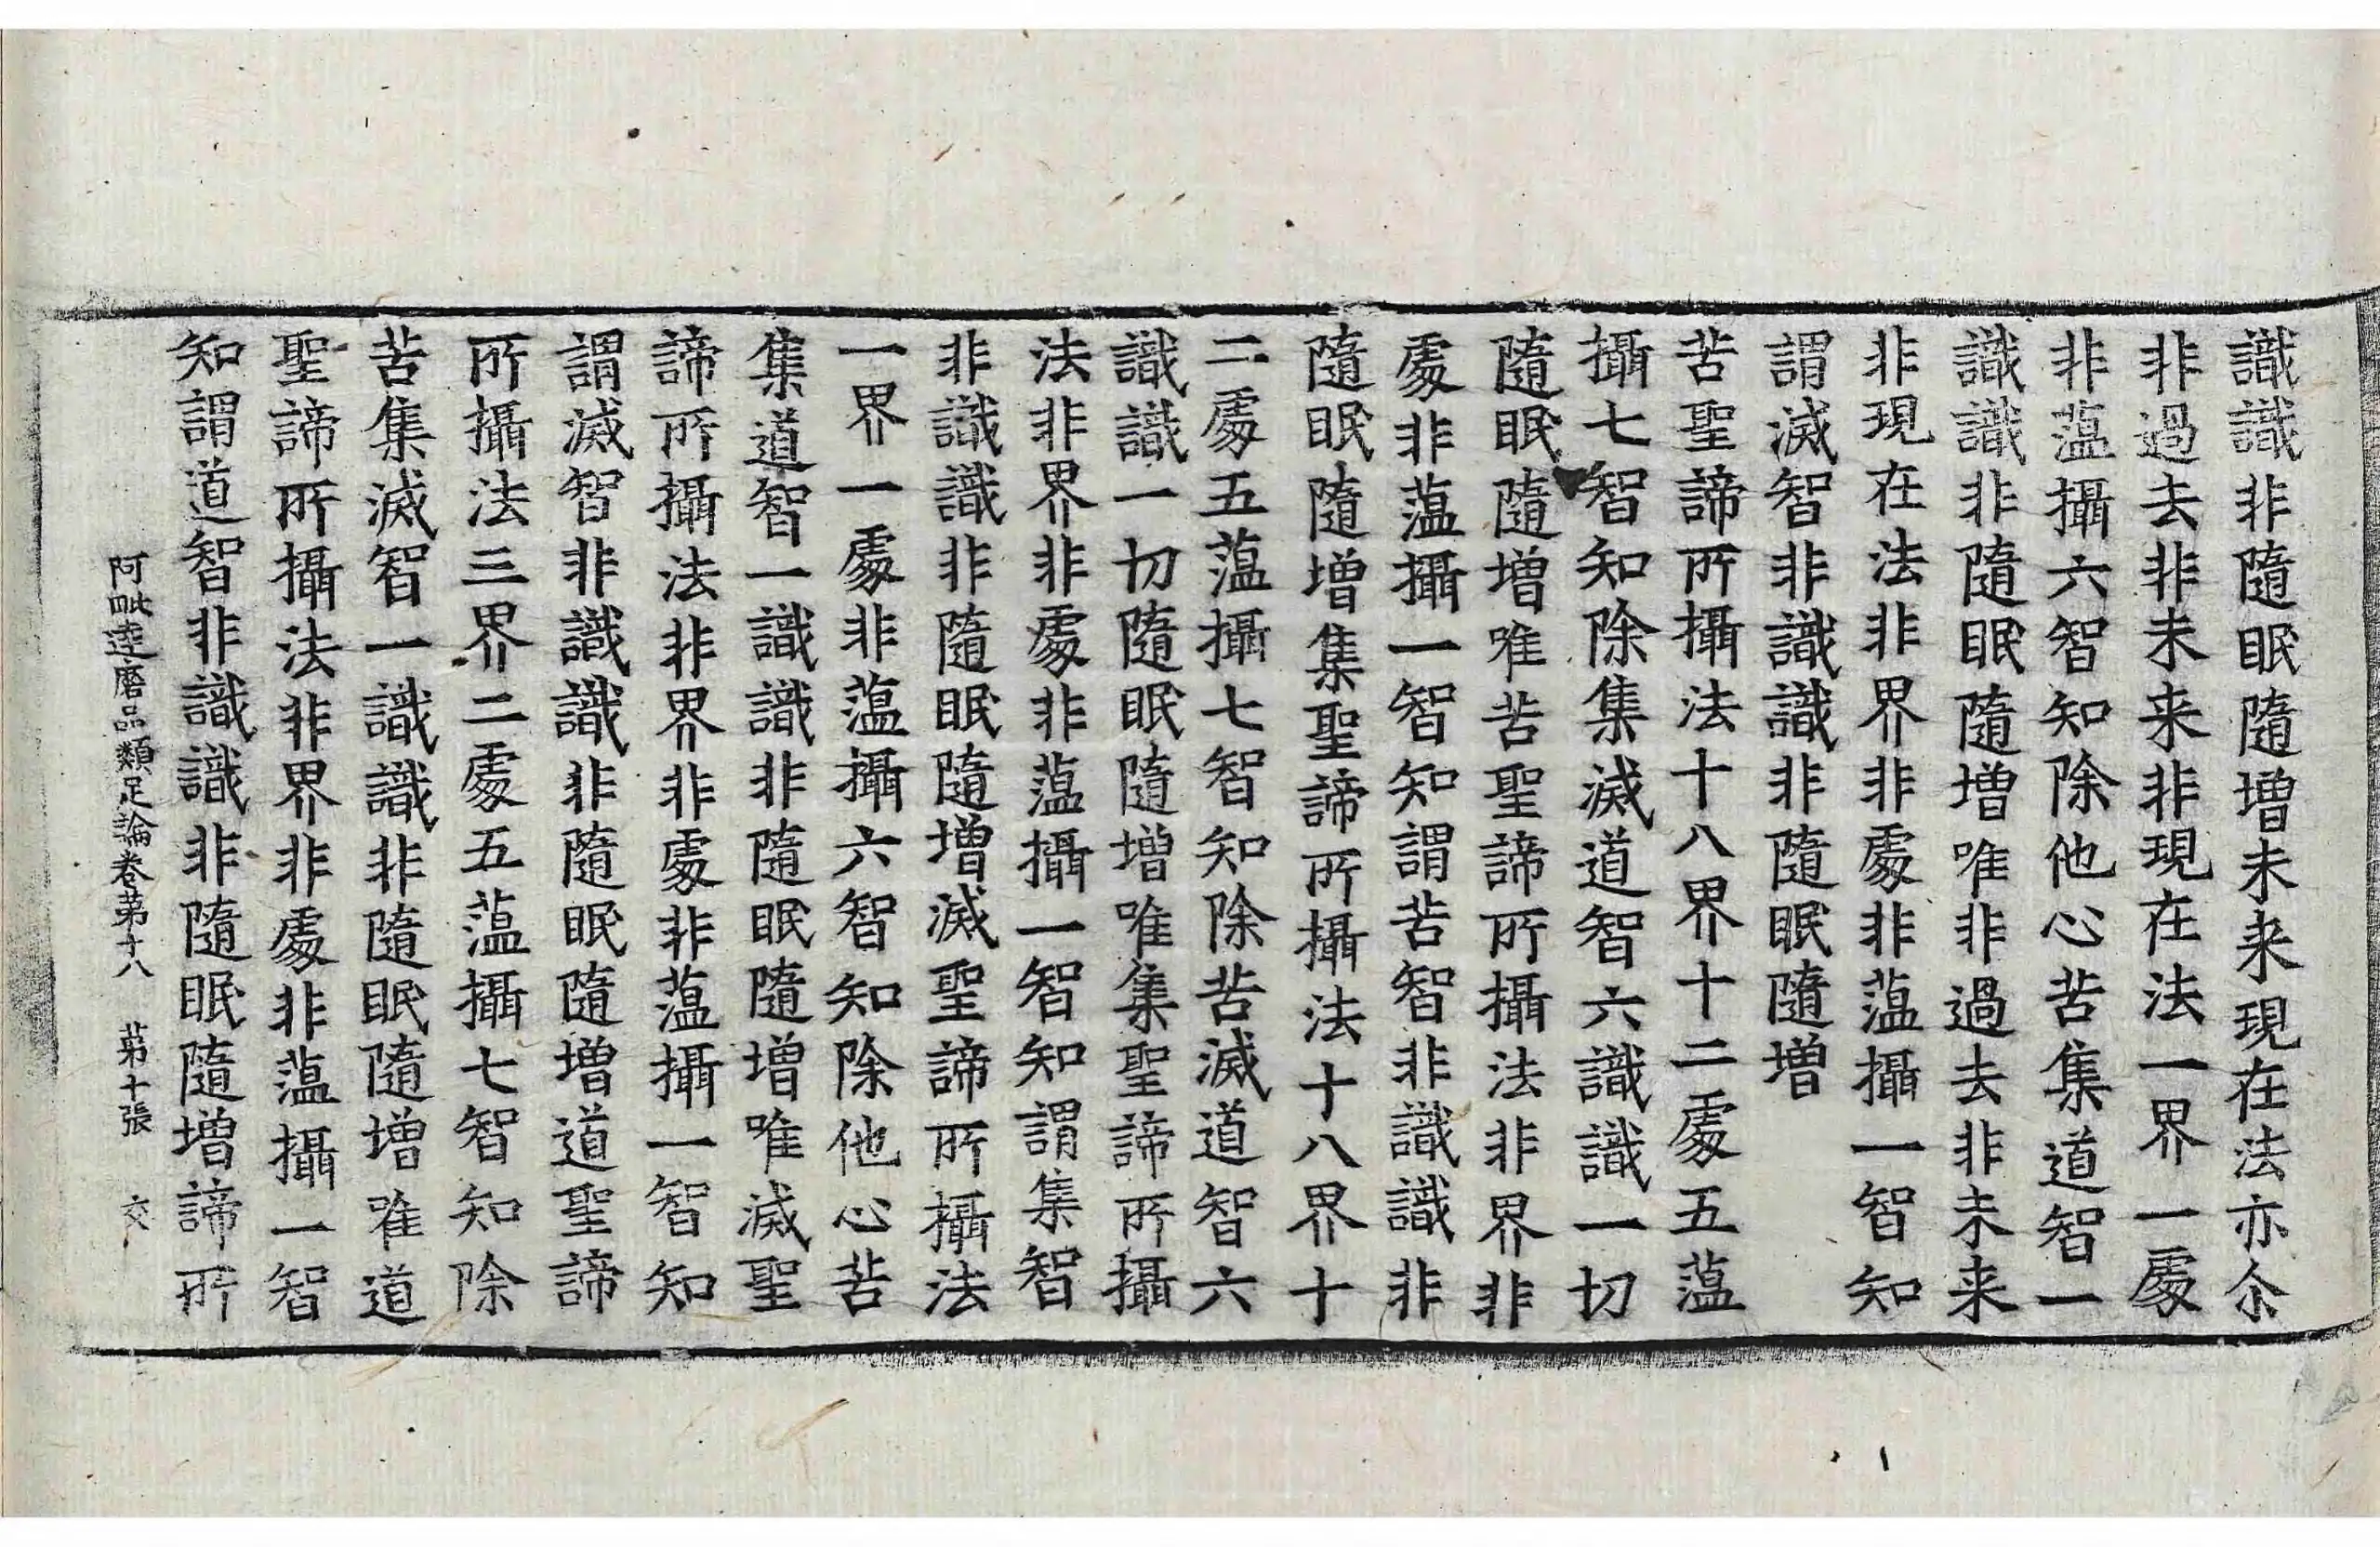 識識非隨眠隨增未来現在法亦尒
非過去非未来非現在法一界一處
非薀攝六智知除他心苦集道智一
識識非隨眠隨增唯非過去非未来
非現在法非界非處非薀攝一智知
謂滅智非識識非隨眠隨增
苦聖諦所攝法十八界十二處五薀
攝七智知除集滅道智六識識一切
隨眠隨增唯苦聖諦所攝法非界非
處非薀攝一智知謂苦智非識識非
隨眠隨增集聖諦所攝法十八界十
二處五薀攝七智知除苦滅道智六
識識一切隨眠隨增唯集聖諦所攝
法非界非處非薀攝一智知謂集智
非識識非隨眠隨增滅聖諦所攝法
一界一處非薀攝六智知除他心苦
集道智一識識非隨眠隨增唯滅聖
諦所攝法非界非處非薀攝一智知
謂滅智非識識非隨眠隨增道聖諦
所攝法三界二處五薀攝七智知除
苦集滅智一識識非隨眠隨增唯道
聖諦所攝法非界非處非薀攝一智
知謂道智非識識非隨眠隨增諦所
阿毗達磨品類足論卷第十八 第十張 交